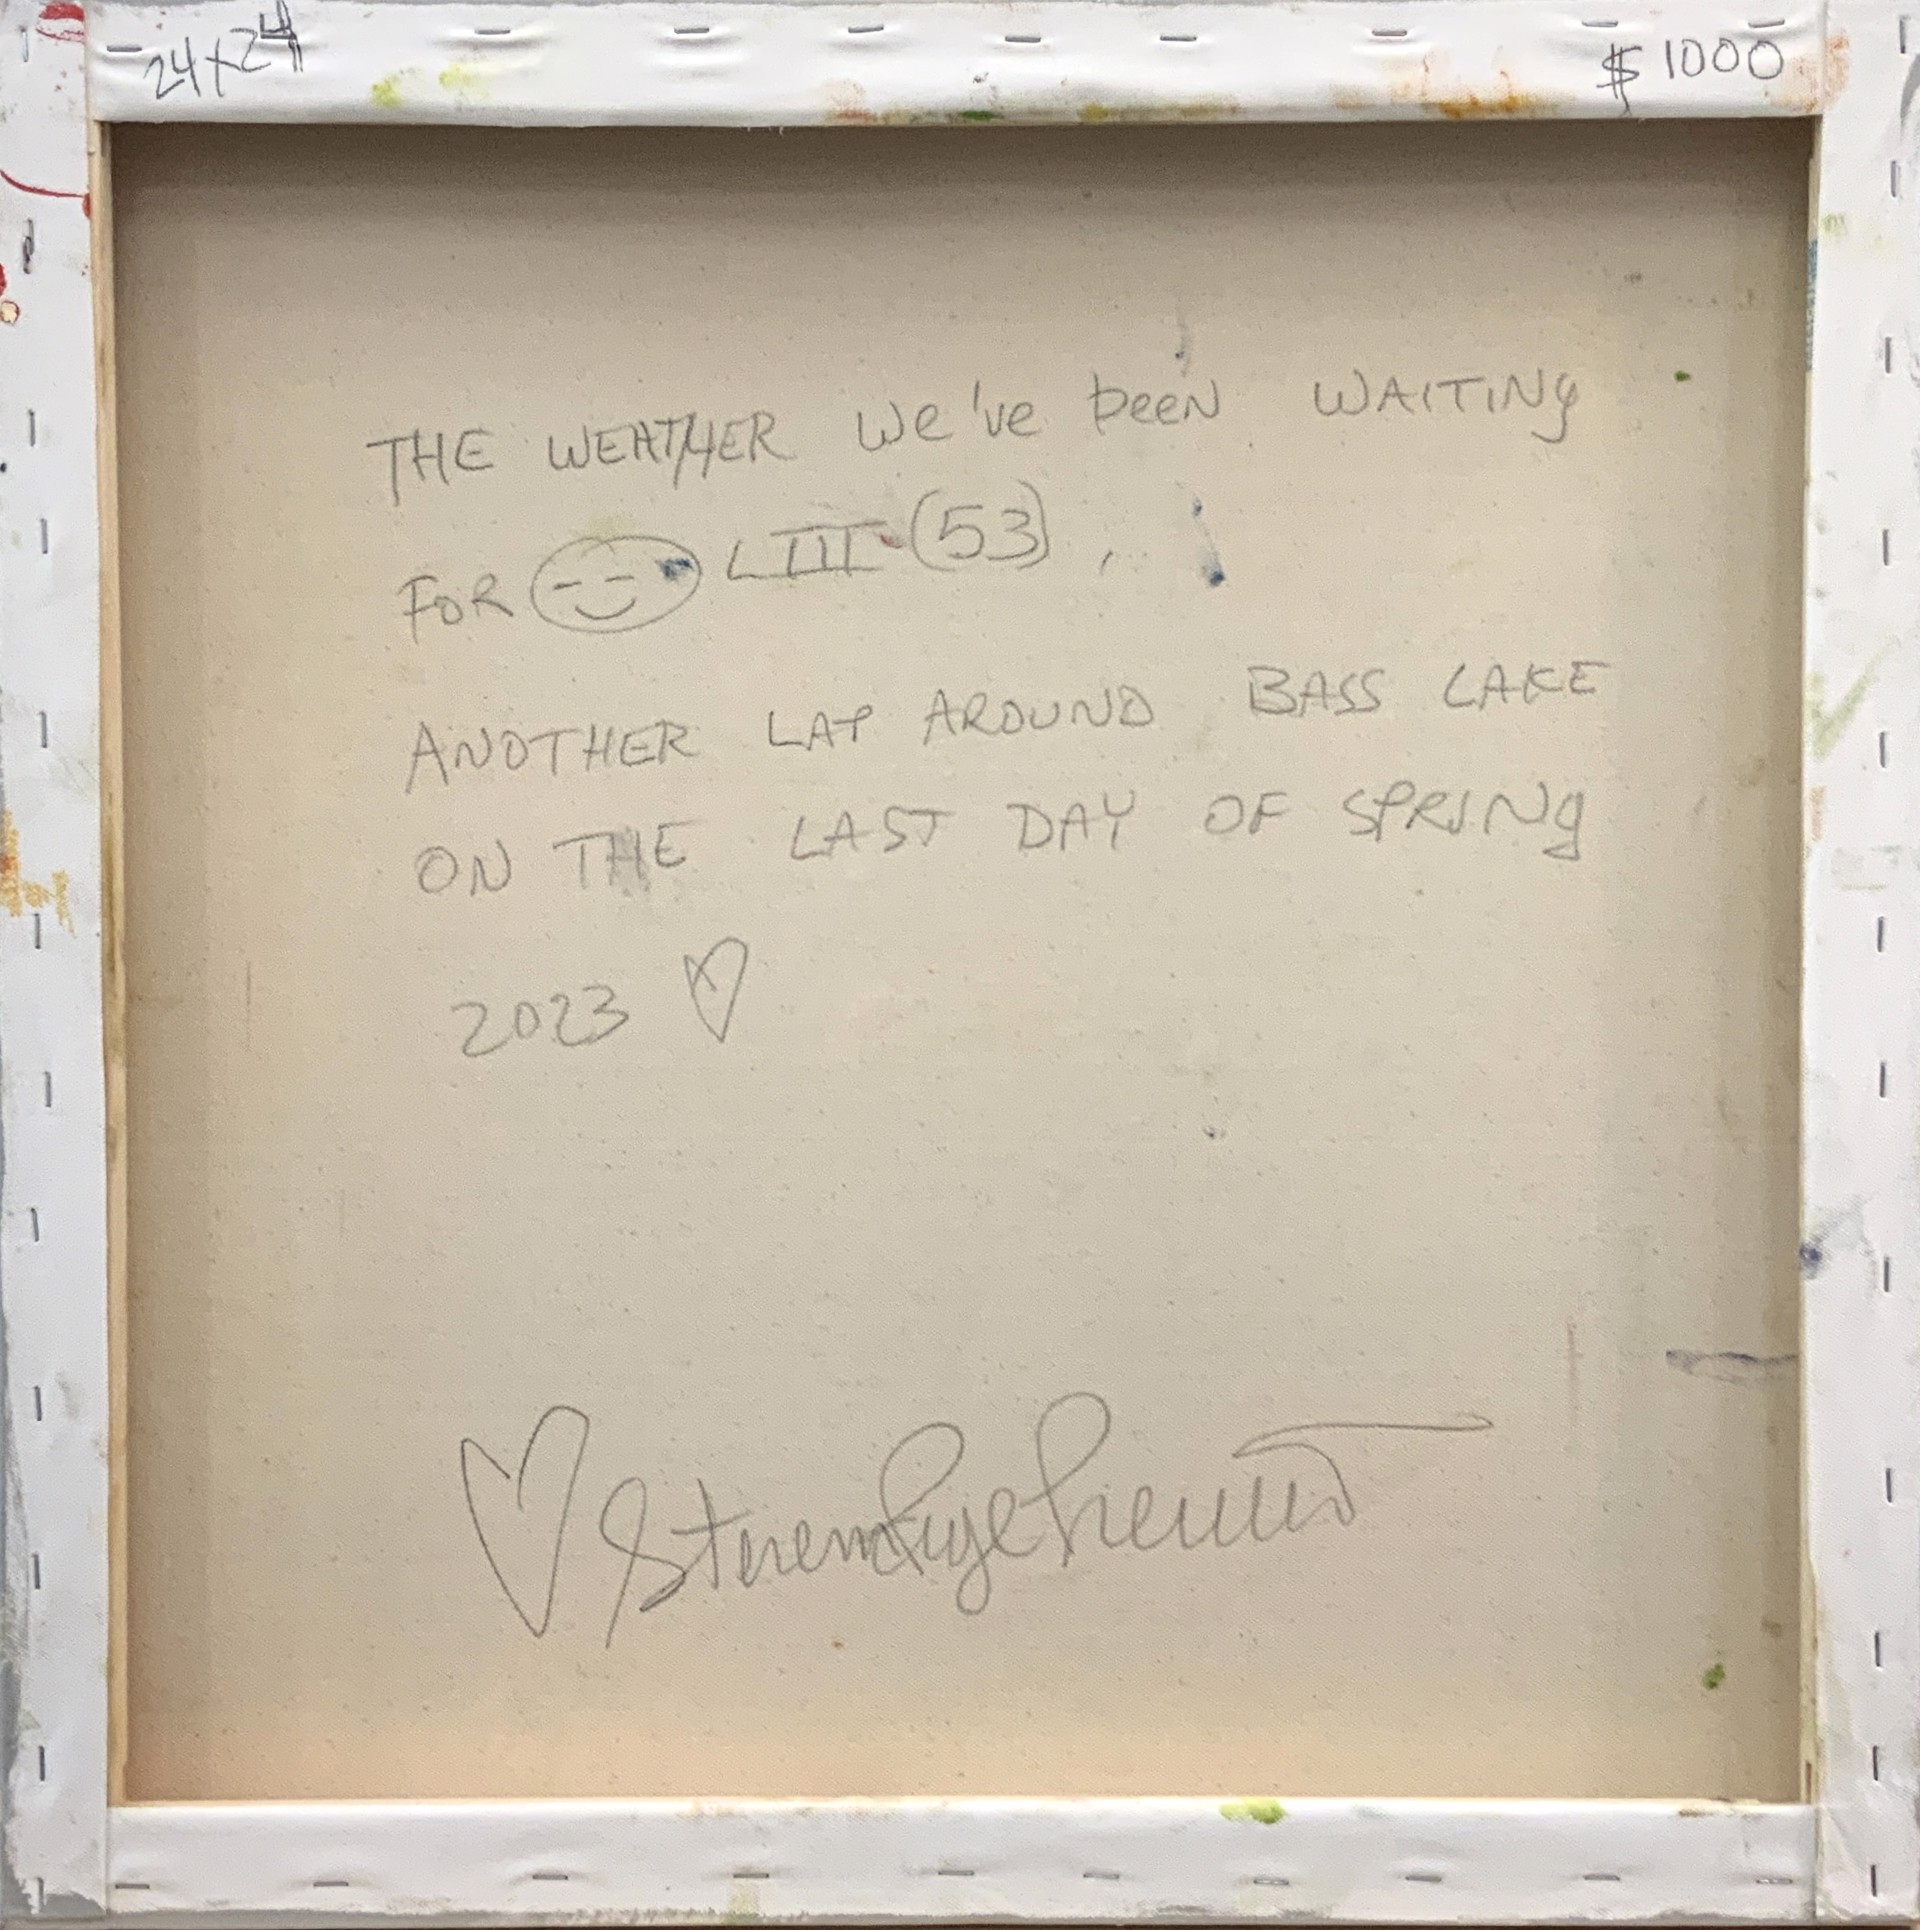 24x24
$1000
THE WEATHER We've been WAITING
FOR LIII (53),
ANOTHER LAP AROUND BASS LAKE
ON THE LAST DAY OF SPRING
2023